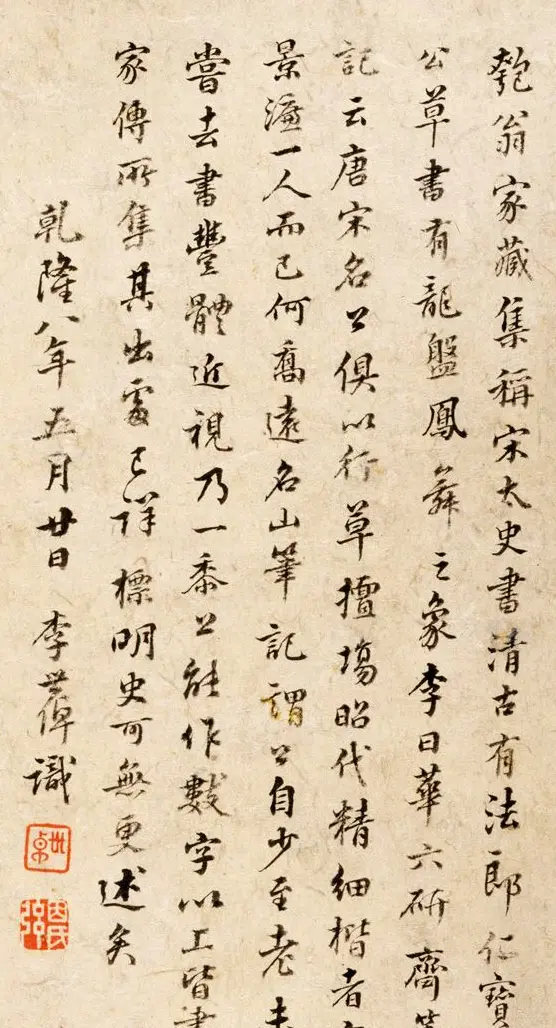 匏翁家藏集稱宋太史書清古有法郎仁寶
公草書有龍盤鳳舞之象李日華六研齋筆
記云唐宋名公俱以行草擅塲昭代精細楷者
景濂一人而已何喬遠名山筆記謂公自少至老未
嘗去書豐體近視乃一黍公能作數字以上皆書
家傳所集其出處已詳標明史可無更述矣
乾隆八年五月廿日 李世倬識
世倬